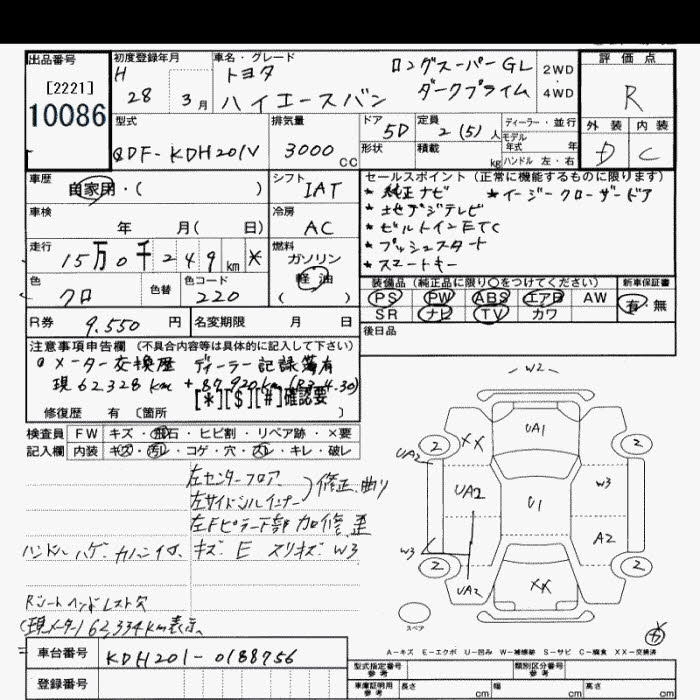 出品番号
[2221]
10086
初度登録年月
H
28 3月
車名・グレード
トヨタ ロングスーパーGL
ハイエースバン ダークプライム
2WD
・
4WD
評価点
R
外装 内装
D C
型式
QDF-KDH201V
排気量
3000 cc
ドア
5D
形状
定員
2(5)人
積載 kg
ディーラー・並行
モデル
年式 年
ハンドル 左・右
車歴
自家用・( )
シフト
IAT
セールスポイント(正常に機能するものに限ります)
* 純正ナビ * イージークローザードア
* 地デジテレビ
* ビルトインETC
* プッシュスタート
* スマートキー
車検
年 月( 日)
冷房
AC
走行
15万0千249km *
燃料
ガソリン
軽油
( )
色
クロ
色替
色コード
220
装備品(純正品に限り○をつけてください)
PS PW ABS エアB AW
SR ナビ TV カワ
新車保証書
有・無
R券 9.550 円
名変期限 月 日
後日品
注意事項申告欄(不具合内容等は具体的に記入して下さい)
メーター交換歴 ディーラー記録簿有
現62328km + 87,920km (R3.4.30)
[*][$][#]確認要
修復歴 有 [箇所 ]
検査員 FW キズ・飛石・ヒビ割・リペア跡・×要
記入欄 内装 キズ・汚レ・コゲ・穴・スレ・キレ・破レ
左センターフロア
左サイドシルインナー
)修正、曲り
左Fピラー下部 加修、歪
ハンドルハゲ、カバーイタ、キズ E スリキズ W3
Rシートヘッドレスト欠
(現メーター)62,334km表示、
W2
UA1
XX
2
2
UA2
UA2
U1
W3
W3
A2
2
2
UA2
XX
スペア
A-キズ E-エクボ U-凹み W-補修跡 S-サビ C-腐食 XX-交換済
車台番号 KDH201-0188756
登録番号
型式指定番号
参考
類別区分番号
参考
車庫証明用
参考
長さ cm 幅 cm 高さ cm